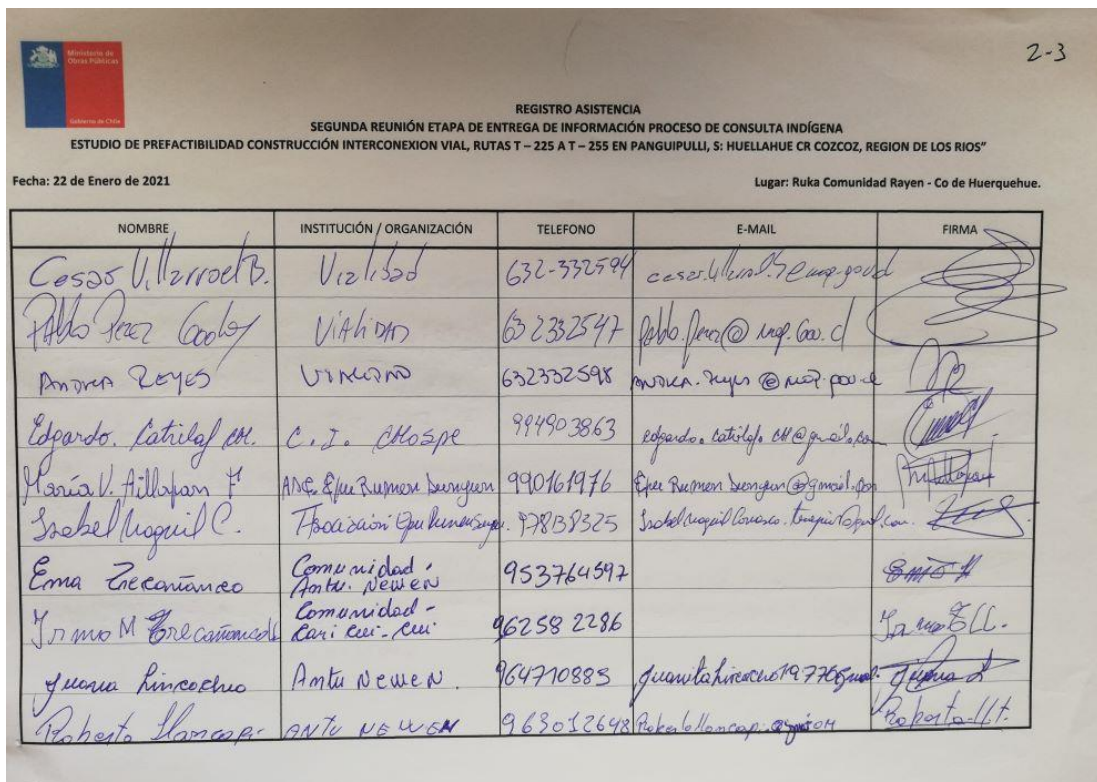 2-3
Ministerio de
Obras Públicas
Gobierno de Chile
REGISTRO ASISTENCIA
SEGUNDA REUNIÓN ETAPA DE ENTREGA DE INFORMACIÓN PROCESO DE CONSULTA INDÍGENA
ESTUDIO DE PREFACTIBILIDAD CONSTRUCCIÓN INTERCONEXION VIAL, RUTAS T – 225 A T – 255 EN PANGUIPULLI, S: HUELLAHUE CR COZCOZ, REGION DE LOS RIOS”
Fecha: 22 de Enero de 2021 Lugar: Ruka Comunidad Rayen - Co de Huerquehue.
NOMBRE INSTITUCIÓN / ORGANIZACIÓN TELEFONO E-MAIL FIRMA
Cesar Villarroel B. Vialidad 632-332594
Pablo Perez Godoy VIALIDAD 632332547 pablo.perez@mop.gov.cl
ANDREA REYES VIALIDAD 632332598 andrea.reyes@mop.gov.cl
Edgardo. Catrilaf CH. C. I. CHOSPE 994903863 edgardo.catrilaf.CH@gmail.com
María V. Aillapan Epu Rumen 990161976
Isabel C. Asociación Epu Rumen
Ema Trecañanco Comunidad - Antu. Newen 953764597
Irma M Trecañanco Comunidad - Cari 962582286 Irma T LL.
Juana Lincocheo Antu Newen. 964710885
Roberto Llancapi ANTU NEWEN 963012648